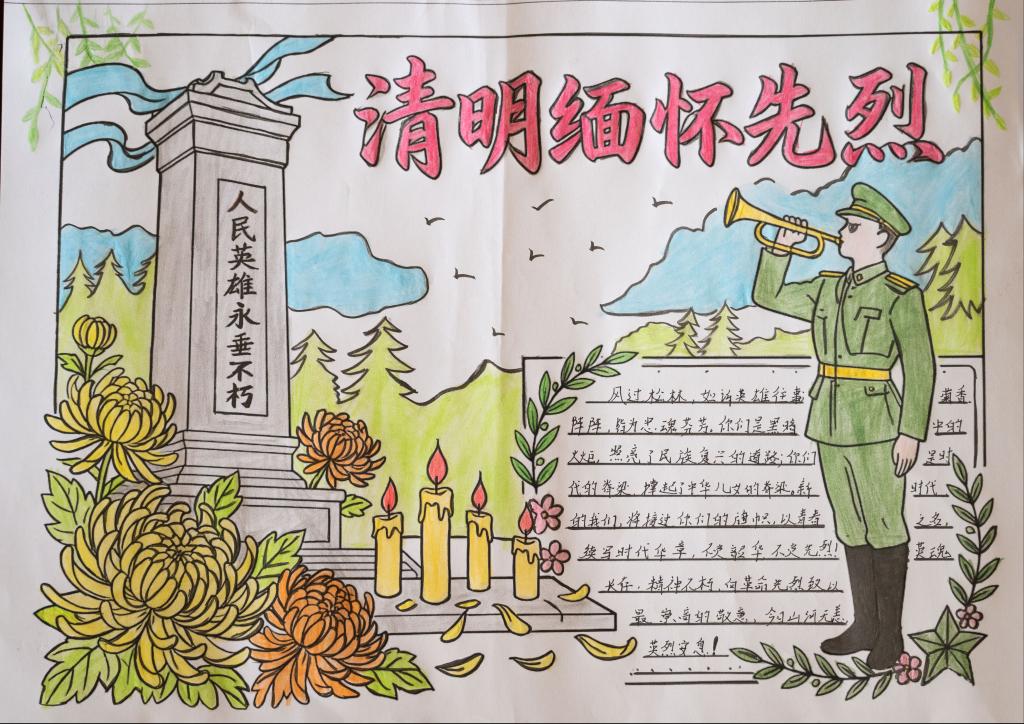 清明缅怀先烈
人民英雄永垂不朽
风过松林，如诉英雄往事 菊香
阵阵，皆为忠魂芬芳。你们是黑暗 中的
火炬，照亮了民族复兴的道路；你们 是时
代的脊梁，撑起了中华儿女的脊梁。新 时代
的我们，将接过你们的旗帜，以青春 之名，
续写时代华章，不负韶华不负先烈！ 英魂
长存，精神不朽，向革命先烈致以
最崇高的敬意，今山河无恙
英烈安息！